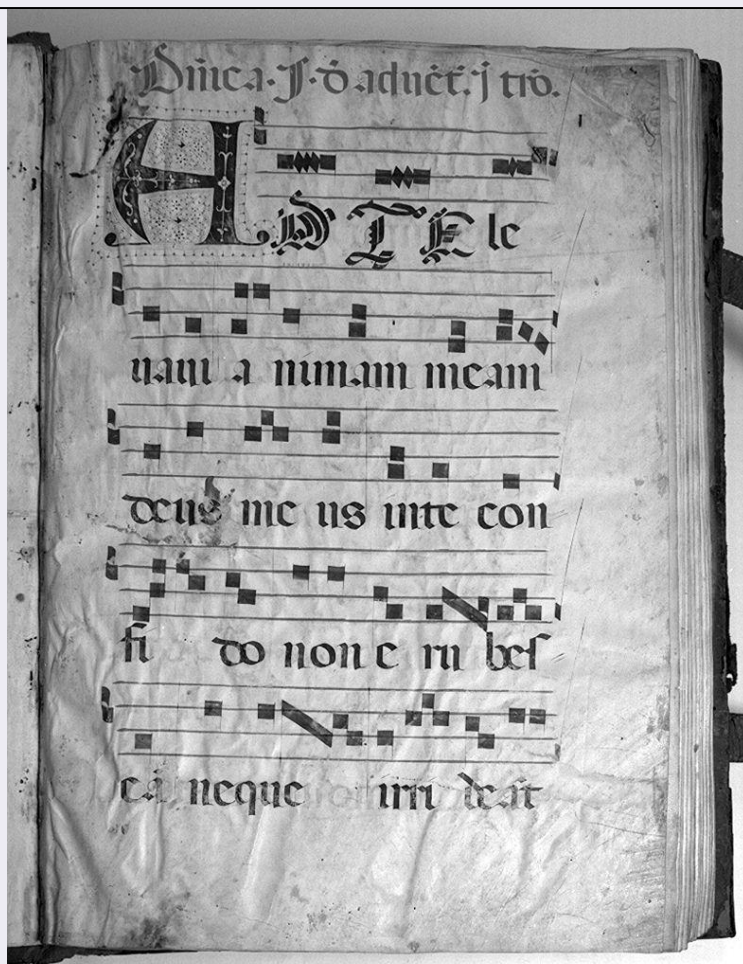 Dñica. J. ð aduẽt. j tro.
AD TE le
uaui a nimam meam
deus me us inte con
fi do non e ru bes
cã neque irri deãt